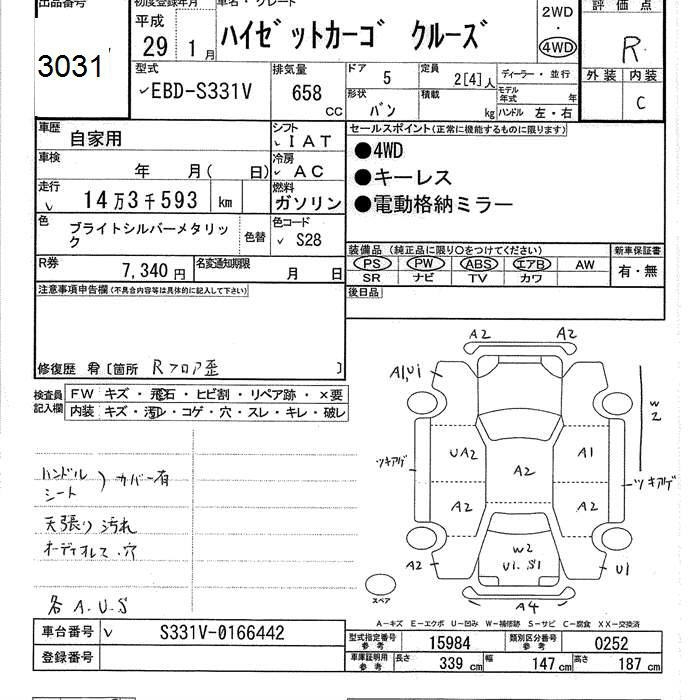 出品番号
初度登録年月
車名・グレード
評価点
3031
平成
29 1月
ハイゼットカーゴ クルーズ
2WD
・
4WD
R
外装 内装
C
型式
EBD-S331V
排気量
658 CC
ドア 5
定員 2[4]人
ディーラー・並行
形状 バン
積載 kg
モデル年式 年
ハンドル 左・右
車歴 自家用
シフト IAT
車検 年 月( 日)
冷房 AC
走行 14万3千593 km
燃料 ガソリン
色 ブライトシルバーメタリック
色替
色コード S28
R券 7,340円
名変通知期限 月 日
セールスポイント(正常に機能するものに限ります)
●4WD
●キーレス
●電動格納ミラー
装備品(純正品に限り○をつけてください)
新車保証書
PS PW ABS エアB AW
有・無
SR ナビ TV カワ
後日品
注意事項申告欄(不具合内容等は具体的に記入して下さい)
修復歴 有〔箇所 Rフロア歪 〕
検査員記入欄
FW キズ・飛石・ヒビ割・リペア跡・×要
内装 キズ・汚れ・コゲ・穴・スレ・キレ・破レ
ハンドル
シート
)カバー有
天張り汚れ
オーディオレス・穴
各A.U.S
A2 A2
A1,U1
W2
ツキアゲ
UA2 A1
A2
ツキアゲ
A2 A2
W2
U1.S1
A2
U1
スペア
A4
A-キズ E-エクボ U-凹み W-補修跡 S-サビ C-腐食 XX-交換済
車台番号 S331V-0166442
登録番号
型式指定番号 参考 15984
類別区分番号 参考 0252
車庫証明用 参考 長さ 339 cm 幅 147 cm 高さ 187 cm